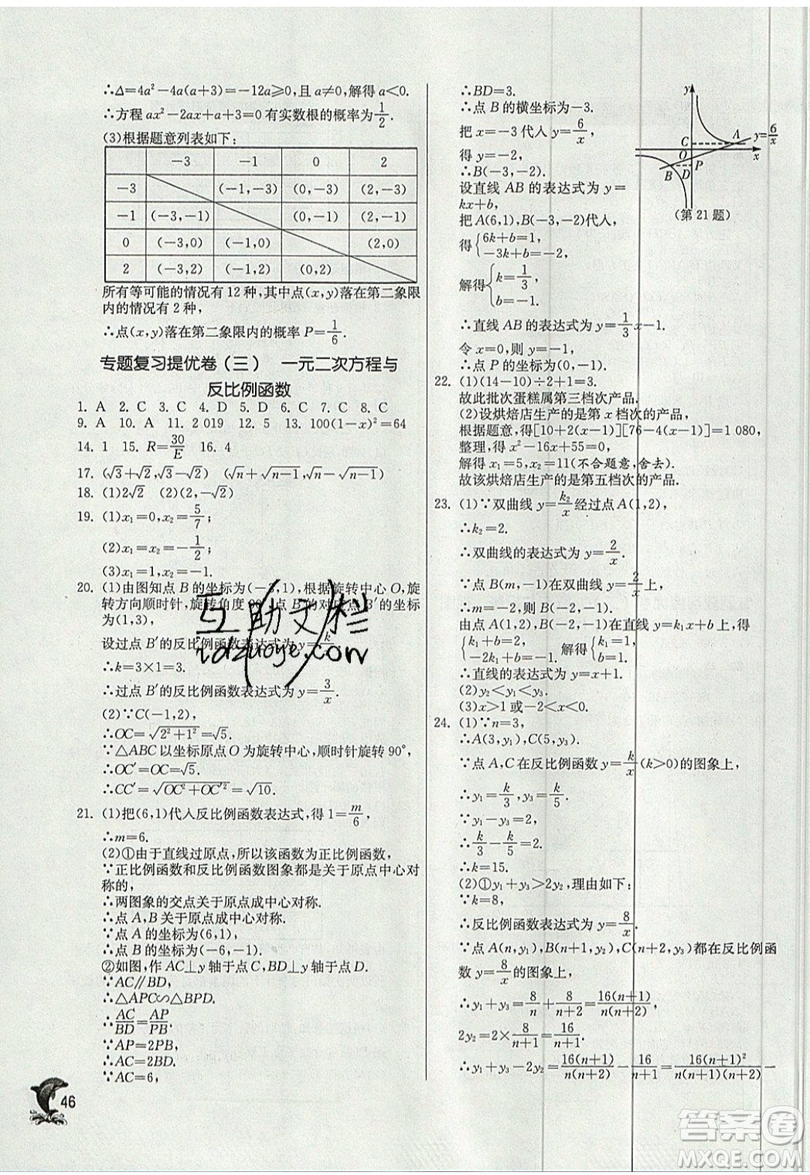 ∴Δ=4a²-4a(a+3)=-12a≥0,且a≠0,解得a<0.
∴方程ax²-2ax+a+3=0有实数根的概率为1/2.
(3)根据题意列表如下:
-3 -1 0 2
-3 (-1,-3) (0,-3) (2,-3)
-1 (-3,-1) (0,-1) (2,-1)
0 (-3,0) (-1,0) (2,0)
2 (-3,2) (-1,2) (0,2)
所有等可能的情况有12种,其中点(x,y)落在第二象限内的情况有2种,
∴点(x,y)落在第二象限内的概率P=1/6.
专题复习提优卷(三) 一元二次方程与
反比例函数
1. A 2. C 3. C 4. D 5. D 6. C 7. B 8. C
9. A 10. A 11. 2 019 12. 5 13. 100(1-x)²=64
14. 1 15. R=30/E 16. 4
17. (√3+√2) (√n+√n-1)(√n-√n-1)
18. (1)2√2 (2)2√2
19. (1)x₁=0,x₂=5/7;
(2)x₁=3,x₂=-1/2;
(3)x₁=x₂=1.
20. (1)由图知点B的坐标为(-3,1),根据旋转中心O,旋转方向顺时针,旋转角度90°,点B的对应点B′的坐标为(1,3),
设过点B′的反比例函数表达式为y=k/x,
∴k=3×1=3.
∴过点B′的反比例函数表达式为y=3/x.
(2)∵C(-1,2),
∴OC=√2²+1²=√5.
∵△ABC以坐标原点O为旋转中心,顺时针旋转90°,
∴OC′=OC=√5.
∴CC′=√OC²+OC′²=√10.
21. (1)把(6,1)代入反比例函数表达式,得1=m/6,
∴m=6.
(2)①由于直线过原点,所以该函数为正比例函数.
∵正比例函数和反比例函数图象都是关于原点中心对称的,
∴两图象的交点关于原点成中心对称.
∴点A,B关于原点成中心对称.
∵点A的坐标为(6,1),
∴点B的坐标为(-6,-1).
②如图,作AC⊥y轴于点C,BD⊥y轴于点D.
∵AC∥BD,
∴△APC∽△BPD.
∴AC/BD=AP/PB.
∵AP=2PB,
∴AC=2BD.
∵AC=6,
46
∴BD=3.
∴点B的横坐标为-3.
把x=-3代入y=6/x,
得y=-2.
∴B(-3,-2).
设直线AB的表达式为
y=kx+b,
把A(6,1),B(-3,-2)代入,
得{6k+b=1, -3k+b=-2.
解得{k=1/3, b=-1.
y
y=6/x
C
A
O
x
B
P
D
(第21题)
∴直线AB的表达式为y=1/3x-1.
令x=0,解得y=-1.
∴点P的坐标为(0,-1).
22. (1)(14-10)÷2+1=3.
故此批次蛋糕属第三档次产品.
(2)设烘焙店生产的是第x档次的产品,
根据题意,得[10+2(x-1)][76-4(x-1)]=1 080,
整理,得x²-16x+55=0.
解得x₁=5,x₂=11(不合题意,舍去).
故该烘焙店生产的是第五档次的产品.
23. (1)∵双曲线y=k₂/x经过点A(1,2),
∴k₂=2.
∴双曲线的表达式为y=2/x.
∵点B(m,-1)在双曲线y=2/x上,
∴m=-2,则B(-2,-1).
由点A(1,2),B(-2,-1)在直线上,得
{k₁+b=2, -2k₁+b=-1. 解得{k₁=1, b=1.
∴直线的表达式为y=x+1.
(2)y₂<y₁<y₃.
(3)x>1或-2<x<0.
24. (1)∵n=3,
∴A(3,y₁),C(5,y₃).
∵点A,C在反比例函数y=k/x(k>0)的图象上,
∴y₁=k/3,y₃=k/5.
∵y₁-y₃=2,
∴k/3-k/5=2.
∴k=15.
(2)①y₁+y₃>2y₂,理由如下:
∵k=8,
∴反比例函数表达式为y=8/x.
∵点A(n,y₁),B(n+1,y₂),C(n+2,y₃)都在反比例函数y=8/x的图象上,
∴y₁+y₃=8/n+8/(n+2)=16(n+1)/n(n+2),
2y₂=2×8/(n+1)=16/(n+1).
∴y₁+y₃-2y₂=16(n+1)/n(n+2)-16/(n+1)=16(n+1)²/n(n+1)(n+2)-
互助文栏
idzuoye.com
答案圈
MXQE.COM